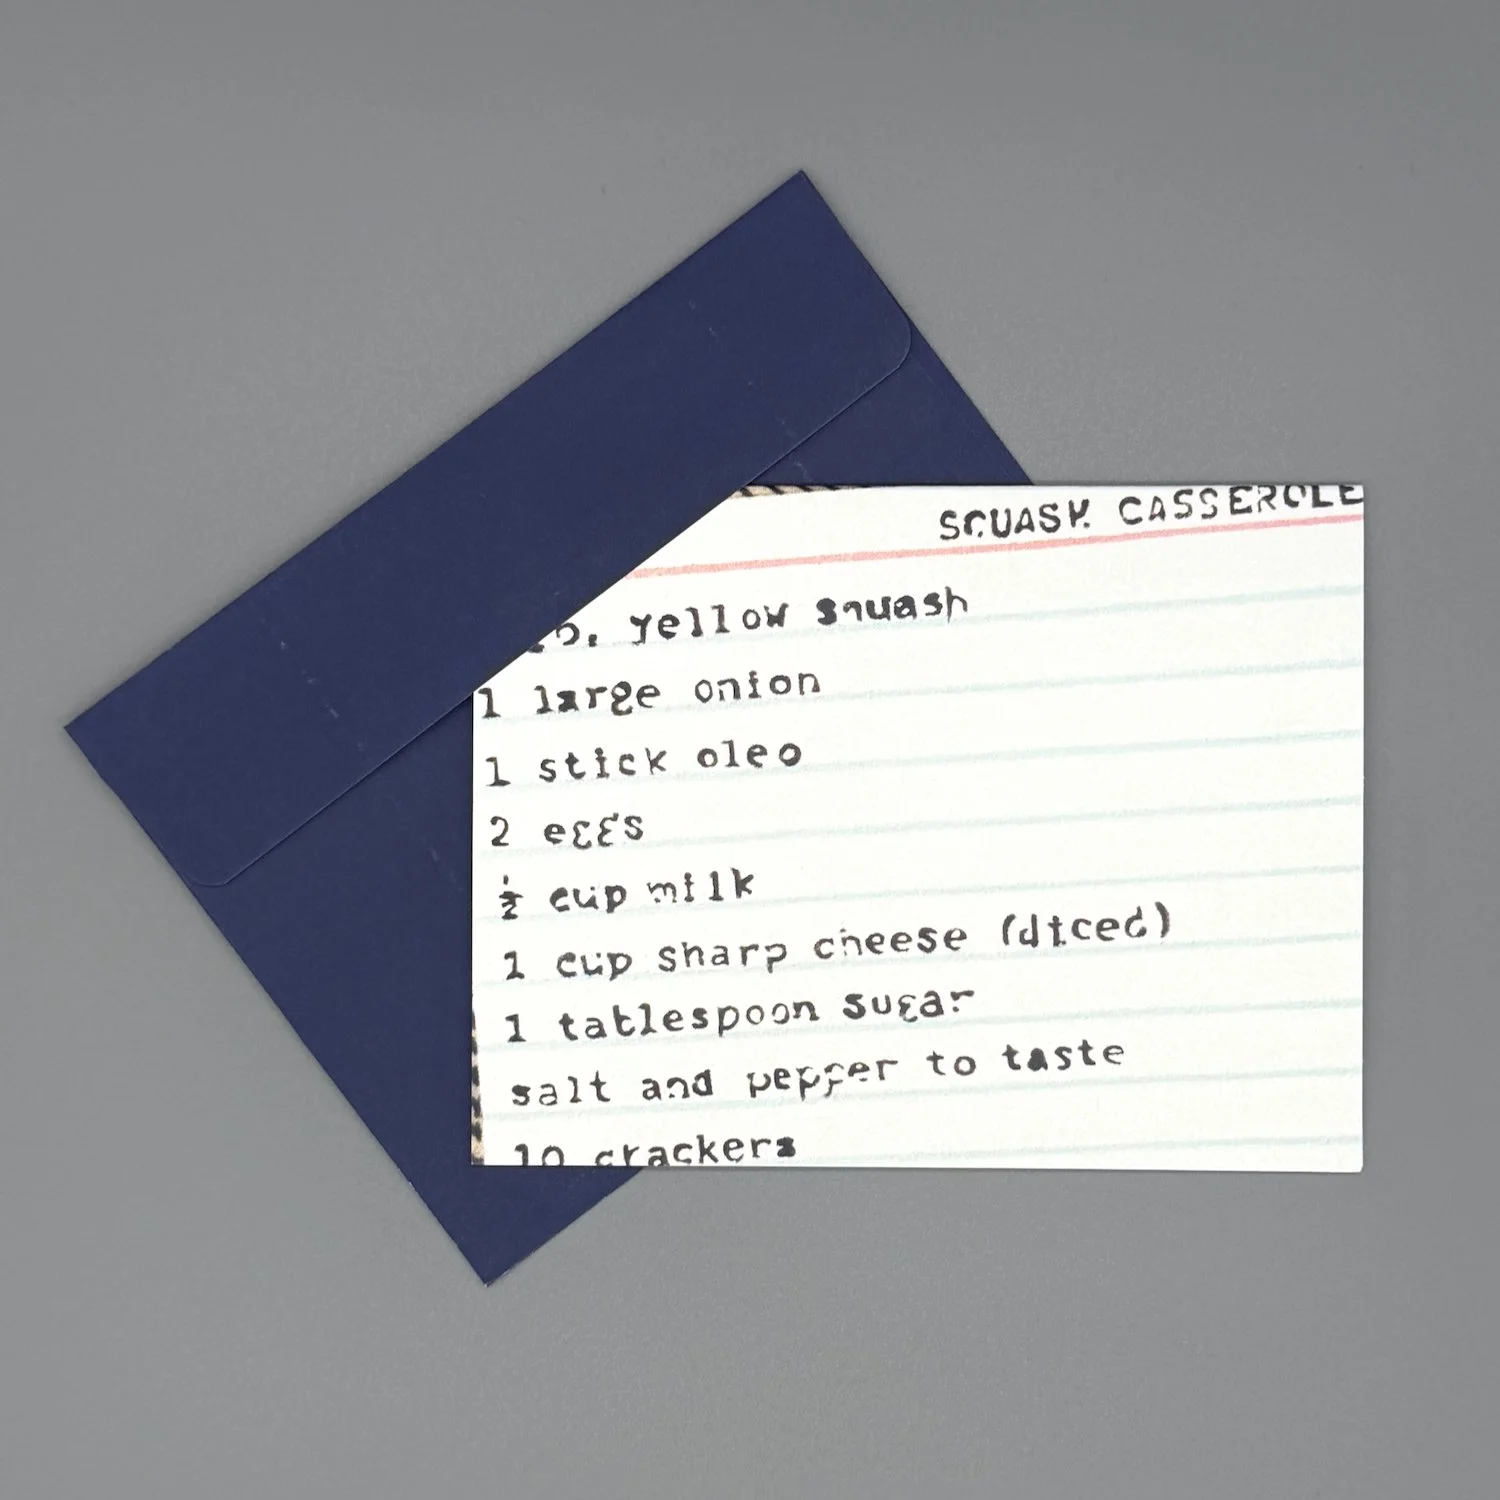 SQUASH CASSEROLE
yellow squash
1 large onion
1 stick oleo
2 eggs
½ cup milk
1 cup sharp cheese (diced)
1 tablespoon sugar
salt and pepper to taste
10 crackers